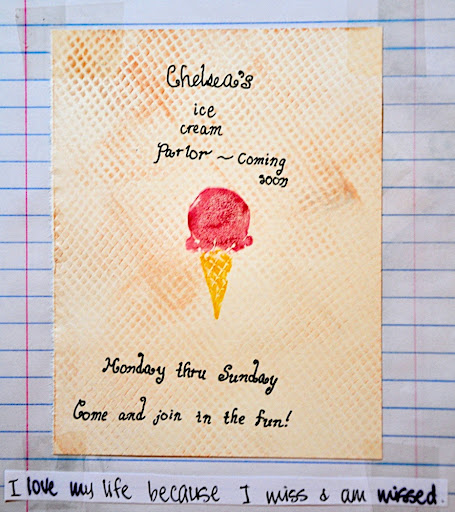 Chelsea's
ice
cream
Parlor ~ Coming
soon
Monday thru Sunday
Come and join in the fun!
I love my life because I miss & am missed.